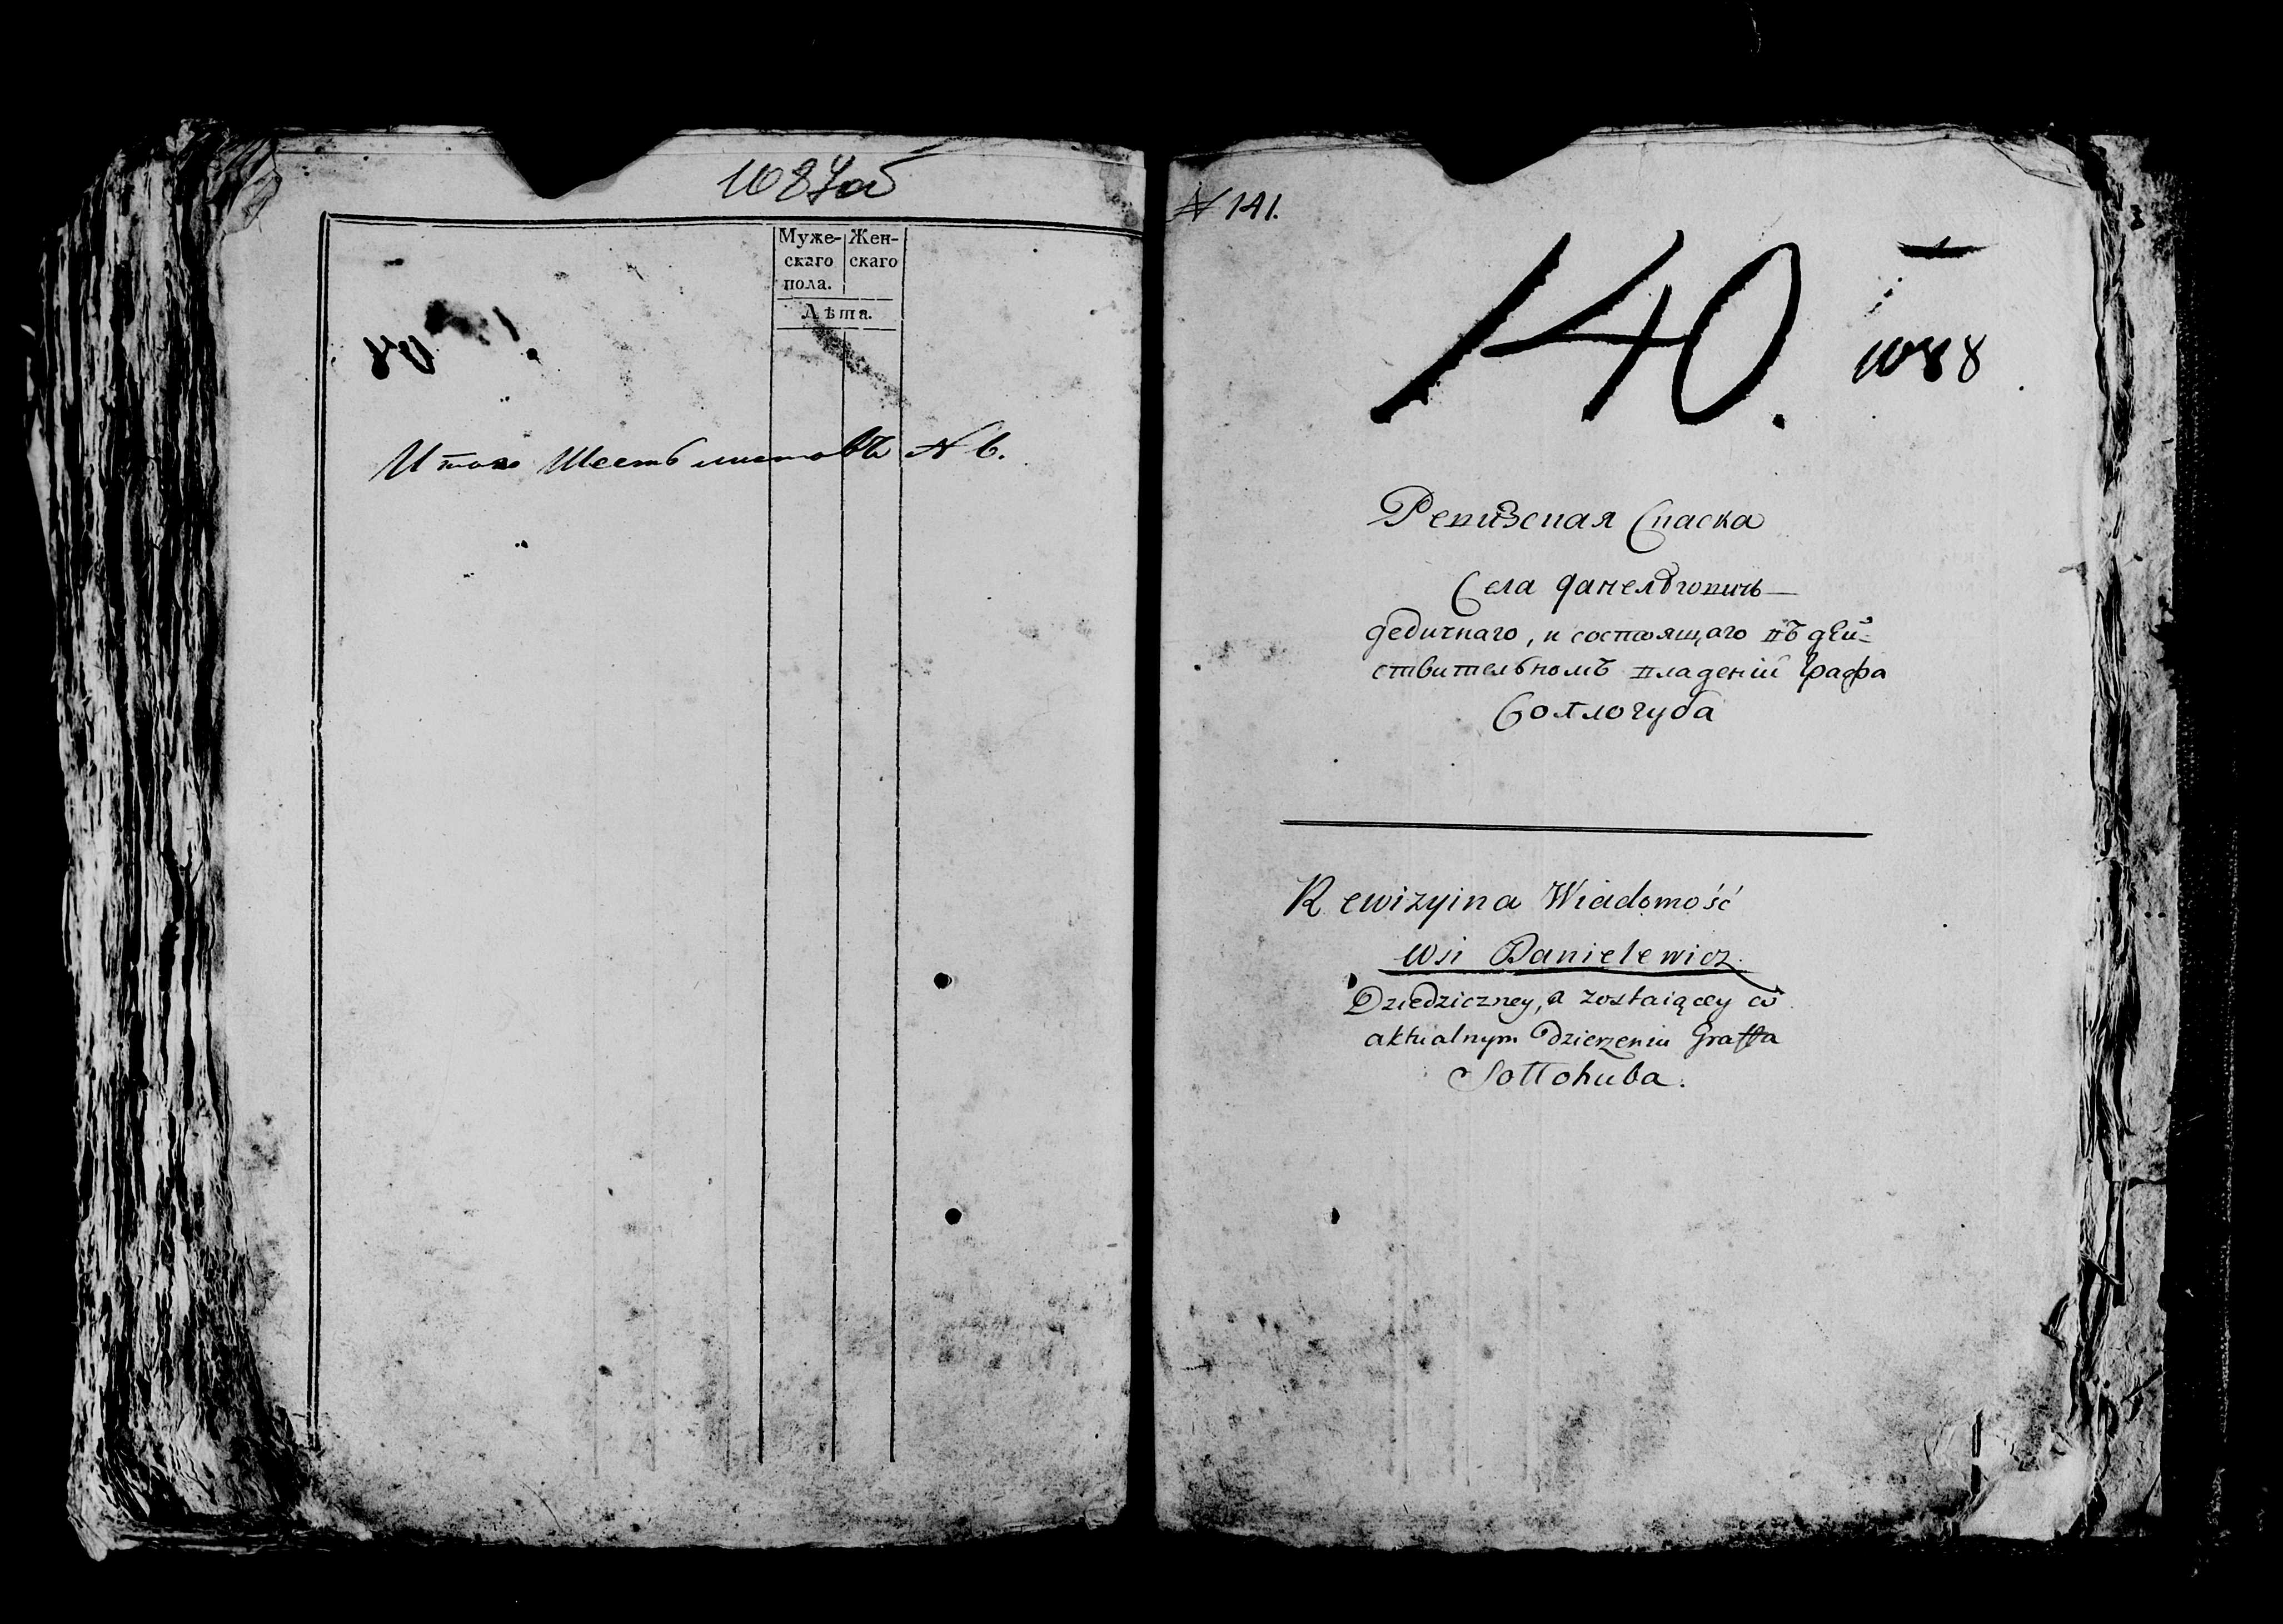 1087об
Муже-
скаго
пола.
Жен-
скаго
Лѣта.
Итого Шесть листовъ N 6.
N 141.
140.
1088
Ревизская Скаска
Села Данелевичь
дедичнаго, и состоящаго въ дѣй=
ствительномъ владенiи Графа
Соллогуба
Rewizyina Wiadomość
Wsi Danielewicz
Dziedziczney, a zostaiącey w
aktualnym dzierzeniu Graffa
Sołłohuba.